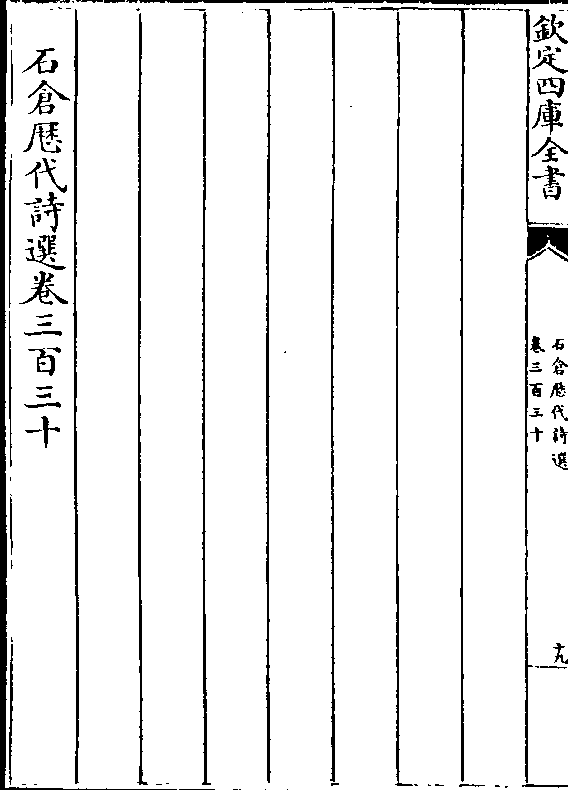 欽定四庫全書
石倉歷代詩選
卷三百三十
十九
石倉歷代詩選卷三百三十